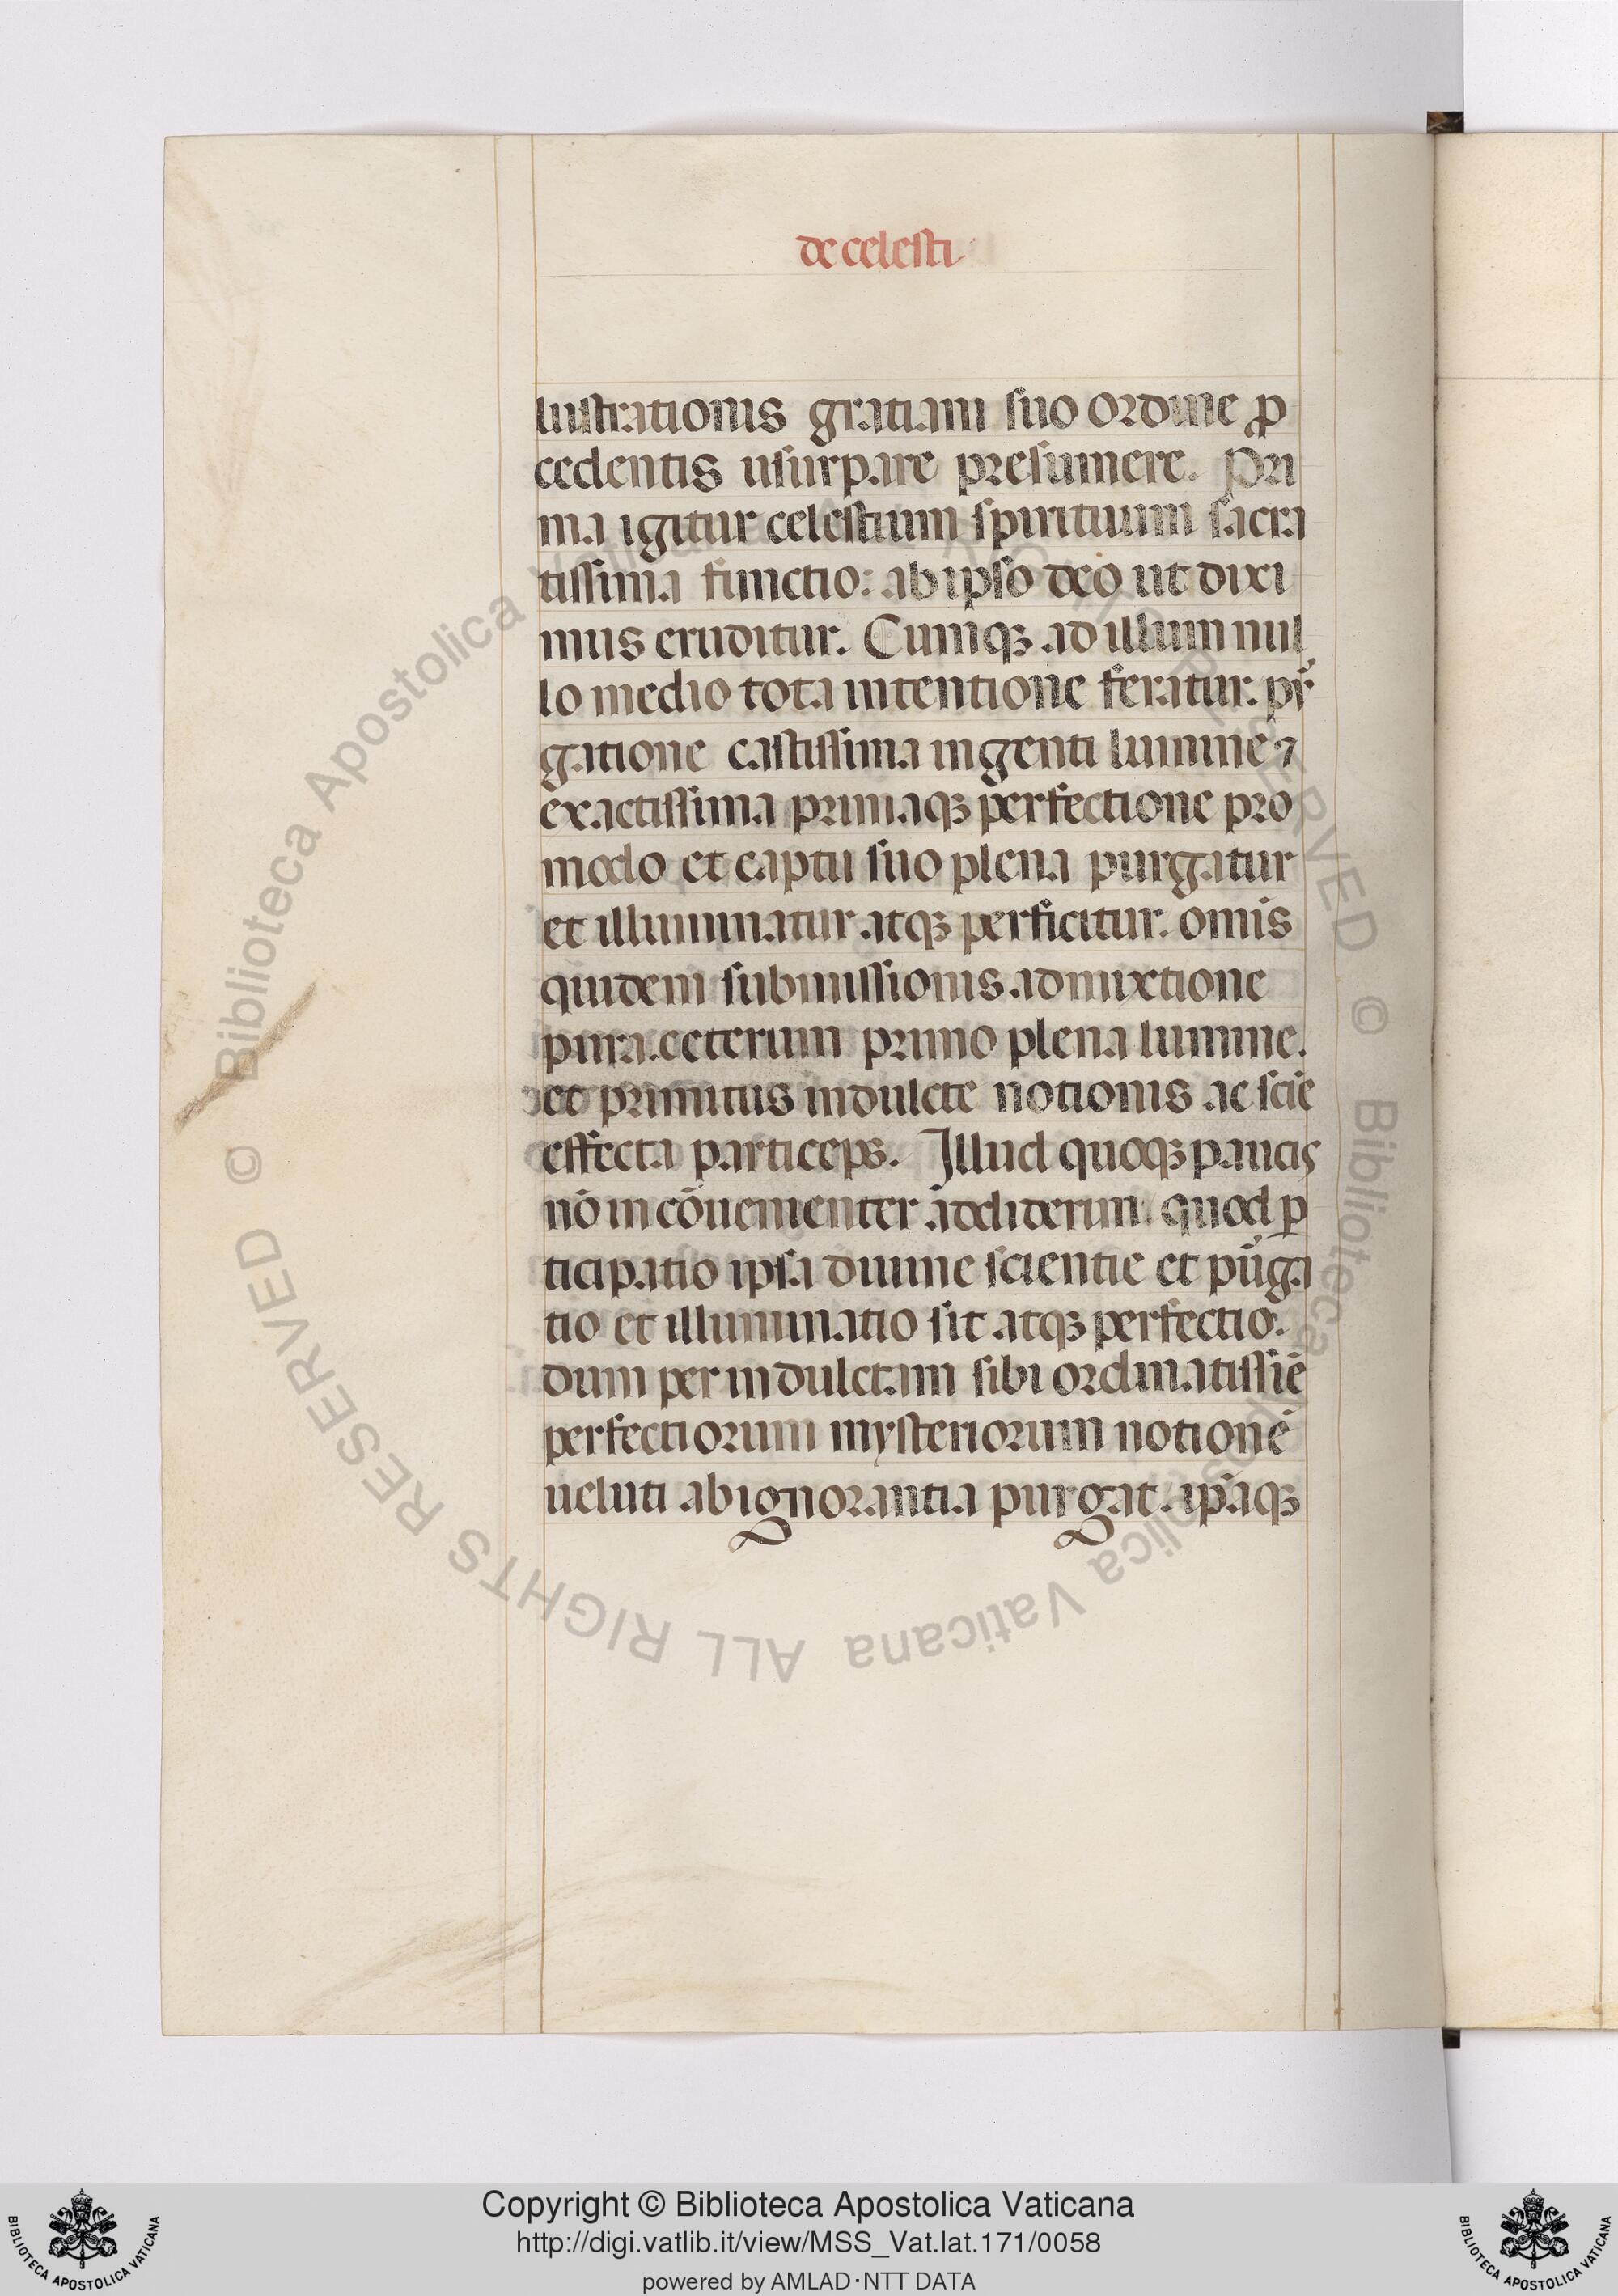 de celesti
lustrationis gratiam suo ordine ꝓ
cedentis usurpare presumere. Pri
ma igitur celestium spirituum sacra
tissima functio: ab ipso deo ut dixi
mus eruditur. Cumqꝫ ad illum nul
lo medio tota intentione feratur. pur
gatione castissima ingenti lumine ⁊
exactissima primaqꝫ perfectione pro
modo et captu suo plena purgatur
et illuminatur atqꝫ perficitur. omīs
quidem submissionis admixtione
pura. ceterum primo plena lumine.
et primitus indulcte notionis ac sciē
effecta particeps. Illud quoqꝫ paucis
nō incōuenienter addiderim quod ꝑ
ticipatio ipsa diuine scientie et purga
tio et illuminatio sit atqꝫ perfectio.
dum per indulctam sibi ordinatissiē
perfectiorum mysteriorum notionē
ueluti ab ignorantia purgat. ip̄aqꝫ
© Biblioteca Apostolica Vaticana ALL RIGHTS RESERVED
Copyright © Biblioteca Apostolica Vaticana
http://digi.vatlib.it/view/MSS_Vat.lat.171/0058
powered by AMLAD·NTT DATA
BIBLIOTECA APOSTOLICA VATICANA
BIBLIOTECA APOSTOLICA VATICANA